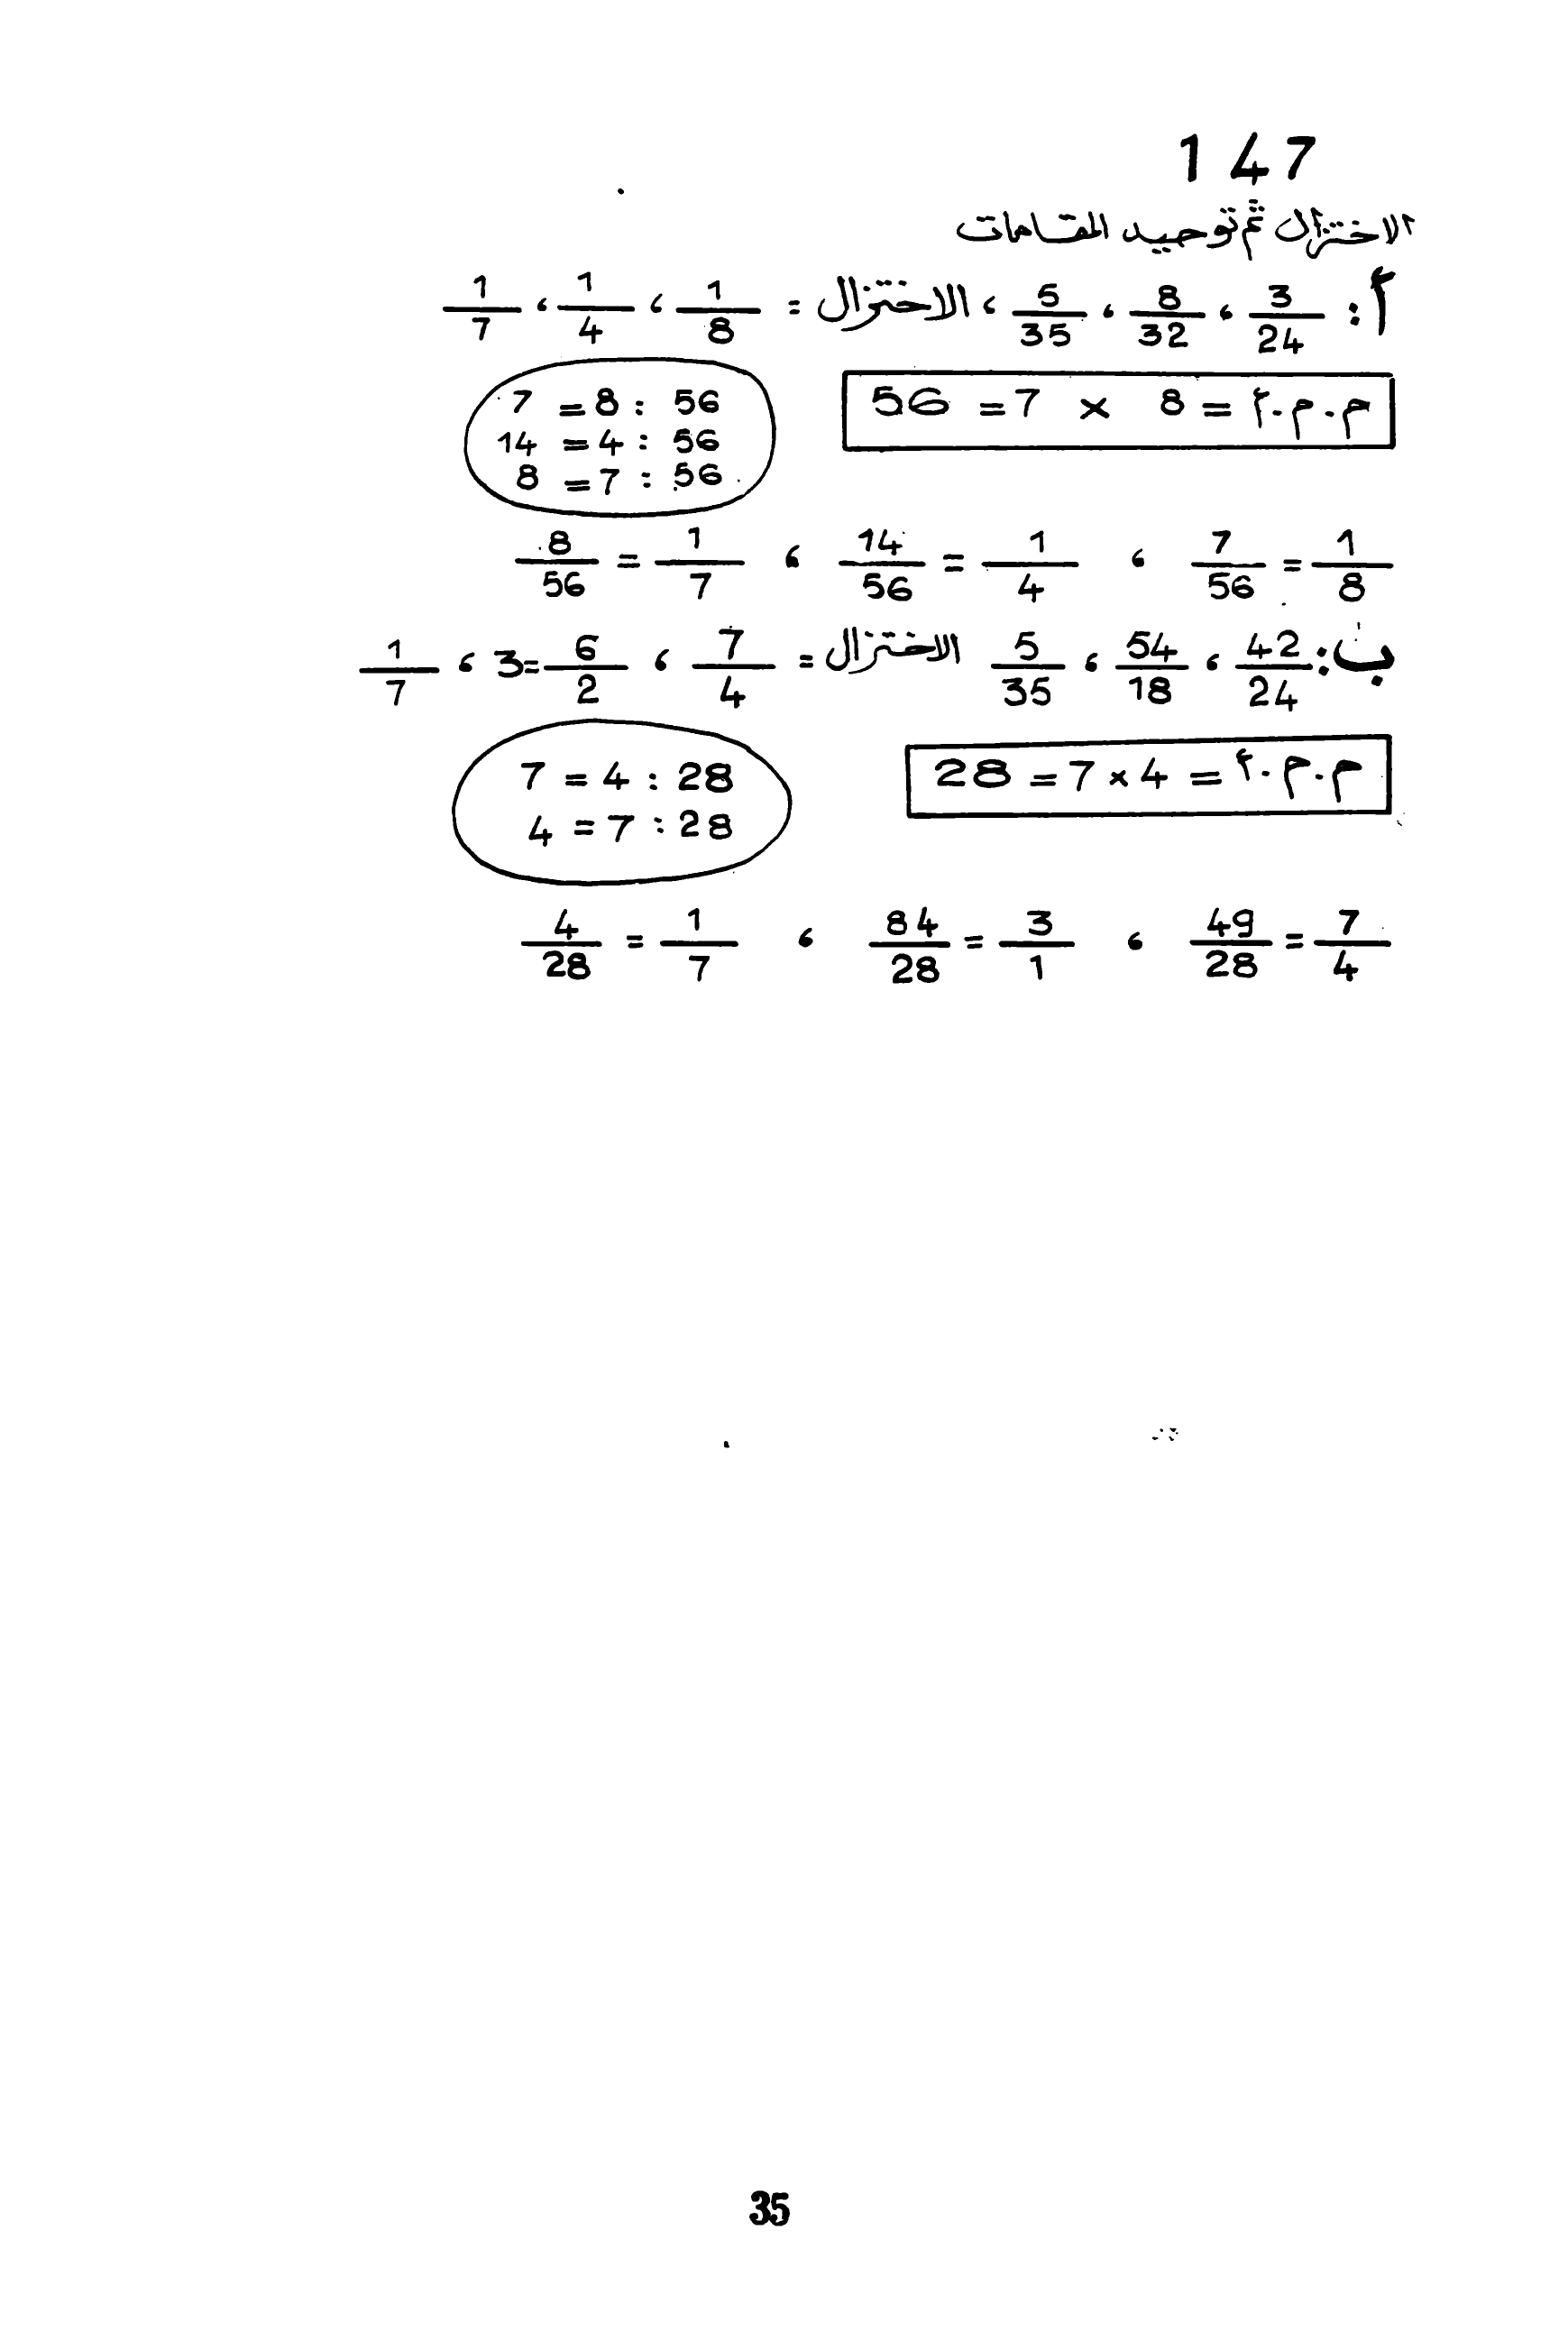 147
الاختزال ثم توحيد المقامات
أ: 3/24 ، 8/32 ، 5/35 ، الاختزال = 1/8 ، 1/4 ، 1/7
م.م.أ = 8 × 7 = 56
56 : 8 = 7
56 : 4 = 14
56 : 7 = 8
1/8 = 7/56 ، 1/4 = 14/56 ، 1/7 = 8/56
ب: 42/24 ، 54/18 ، 5/35 الاختزال = 7/4 ، 6/2 = 3 ، 1/7
م.م.أ = 4 × 7 = 28
28 : 4 = 7
28 : 7 = 4
7/4 = 49/28 ، 3/1 = 84/28 ، 1/7 = 4/28
35